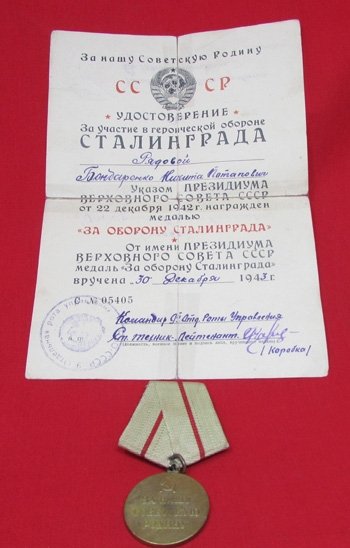 За нашу Советскую Родину
СС СР
УДОСТОВЕРЕНИЕ
За участие в героической обороне
СТАЛИНГРАДА
Рядовой
Бондаренко Никита Потапович
Указом ПРЕЗИДИУМА
ВЕРХОВНОГО СОВЕТА СССР
от 22 декабря 1942 г. награжден
медалью
"ЗА ОБОРОНУ СТАЛИНГРАДА"
От имени ПРЕЗИДИУМА
ВЕРХОВНОГО СОВЕТА СССР
медаль "За оборону Сталинграда"
вручена 30 декабря 1943 г.
№ 05405
Командир 9 Отд. Роты Управления
Ст. техник-лейтенант
/Коробка/
ЗА НАШУ
СОВЕТСКУЮ
РОДИНУ